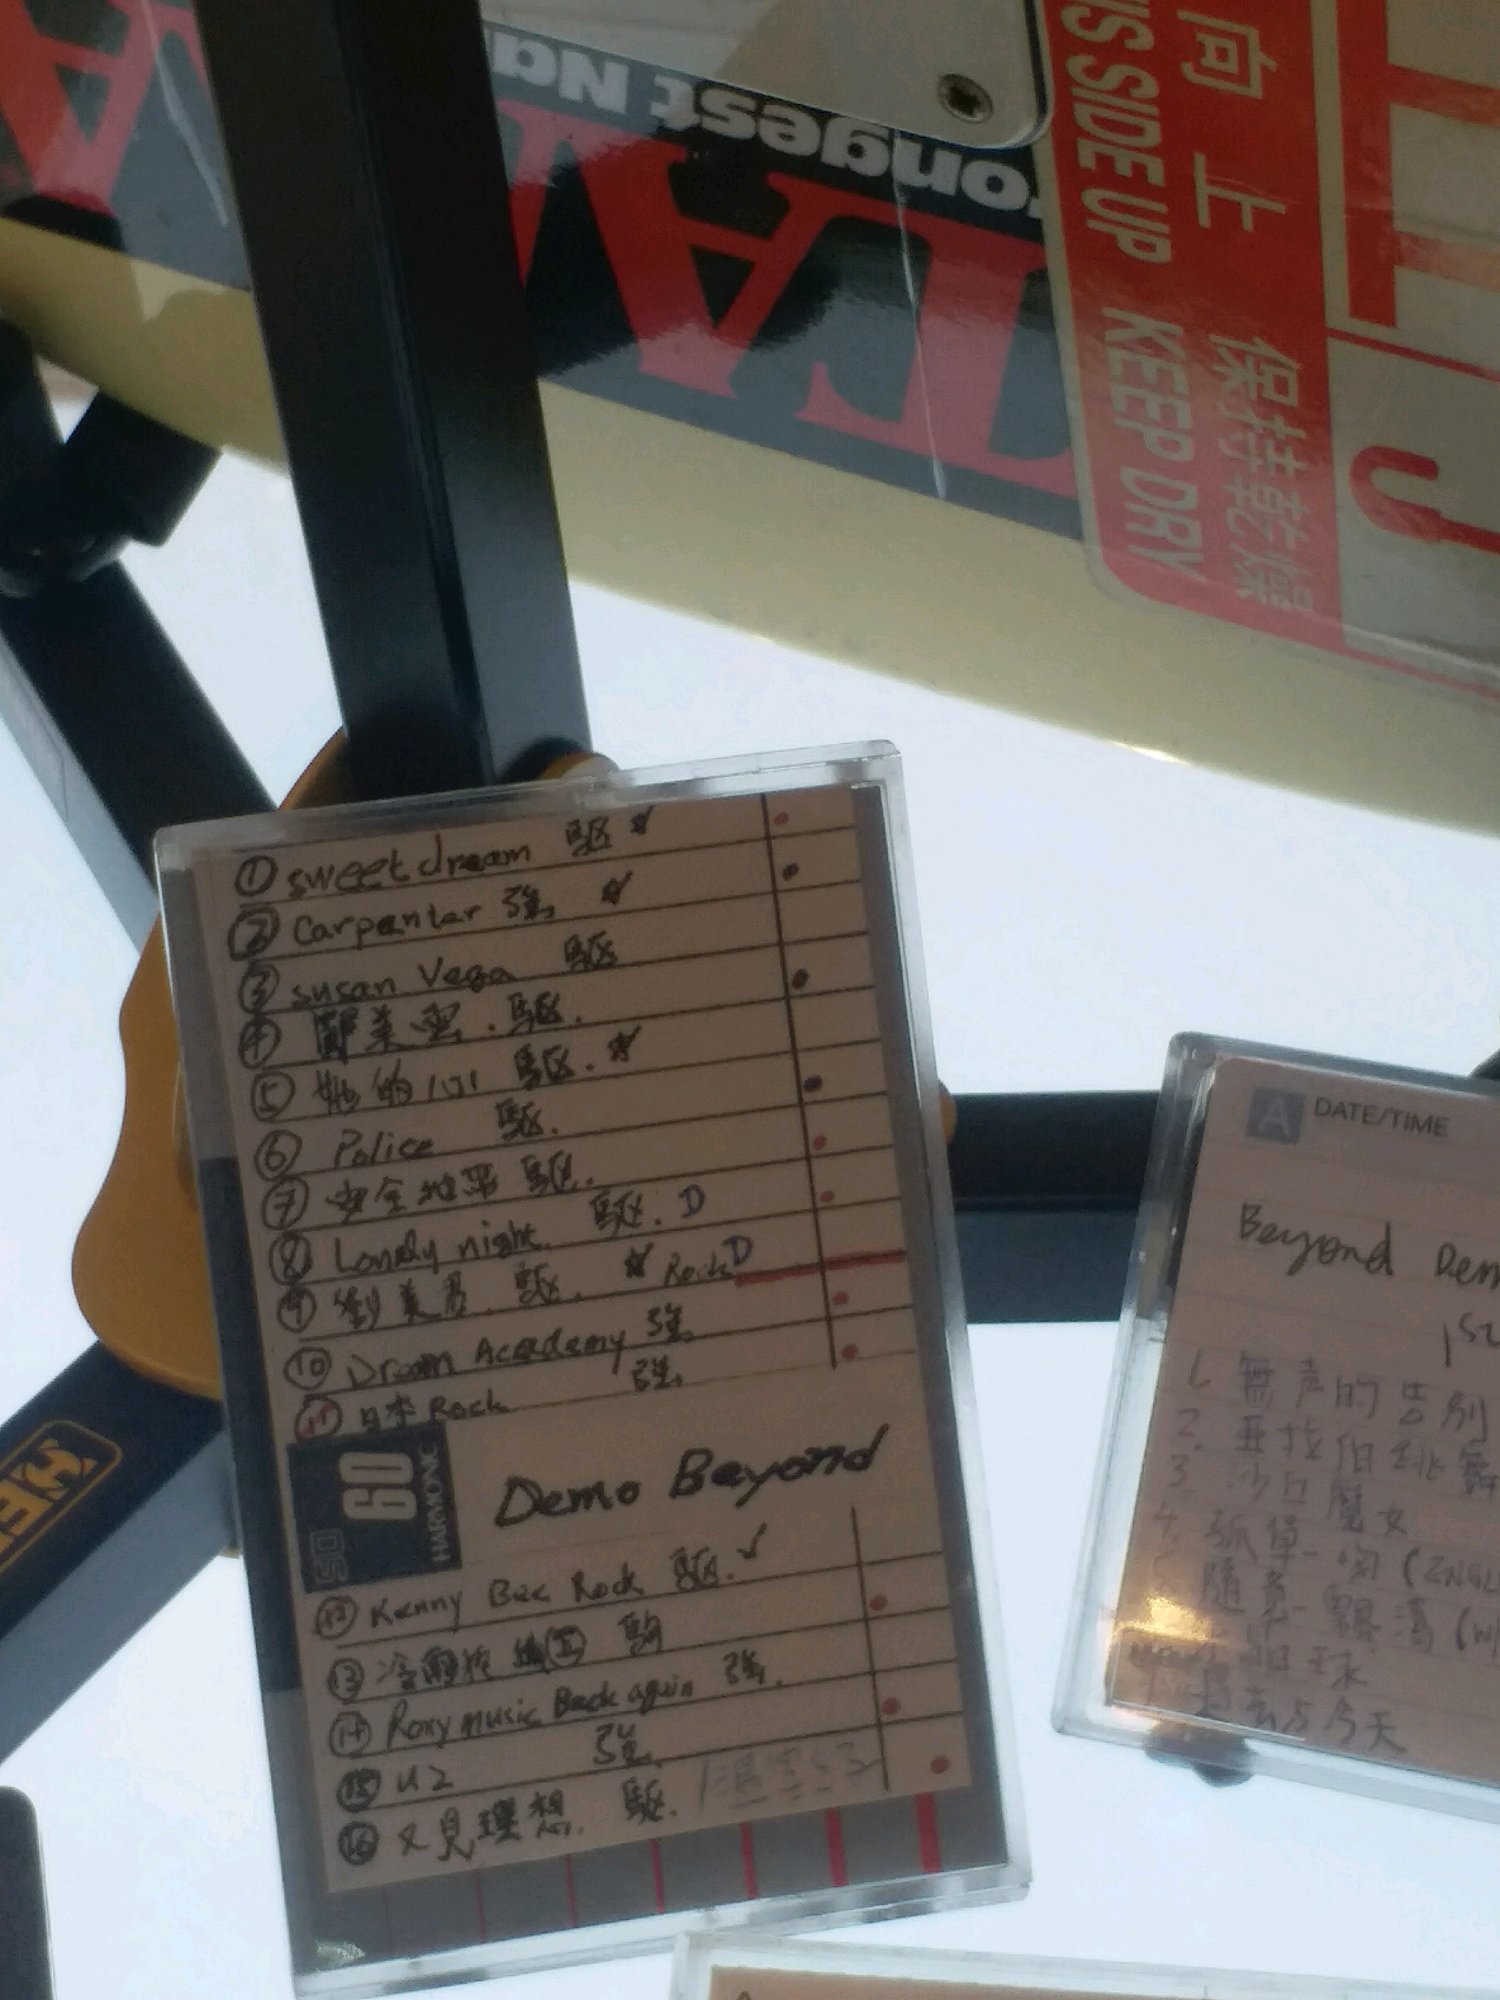 ongest Na
TA
向上 保持乾燥
IS SIDE UP KEEP DRY
① sweet dream 駆 ☆
② Carpenter 強 ☆
③ susan Vega 駆
④ 駆.
⑤ 她的心 駆. ☆
⑥ Police 駆.
⑦ 安全地帶 駆.
⑧ Lonely night. 駆. D
⑨ 駆. ☆ Rock D
⑩ Dream Academy 強
⑪ 日本 Rock 強
60
HARMONIC
Demo Beyond
⑫ Kenny Bee Rock 駆. ✓
⑬ 冷
⑭ Roxy music Back again 強.
⑮ U2 強
⑯ 又見理想. 駆.
A DATE/TIME
Beyond Dem
1. 無声的告別
2. 亚拉伯跳舞
3. 沙丘魔女
4. 孤單一吻 (ENGL
5. 隨意飄蕩 (W
过去与今天